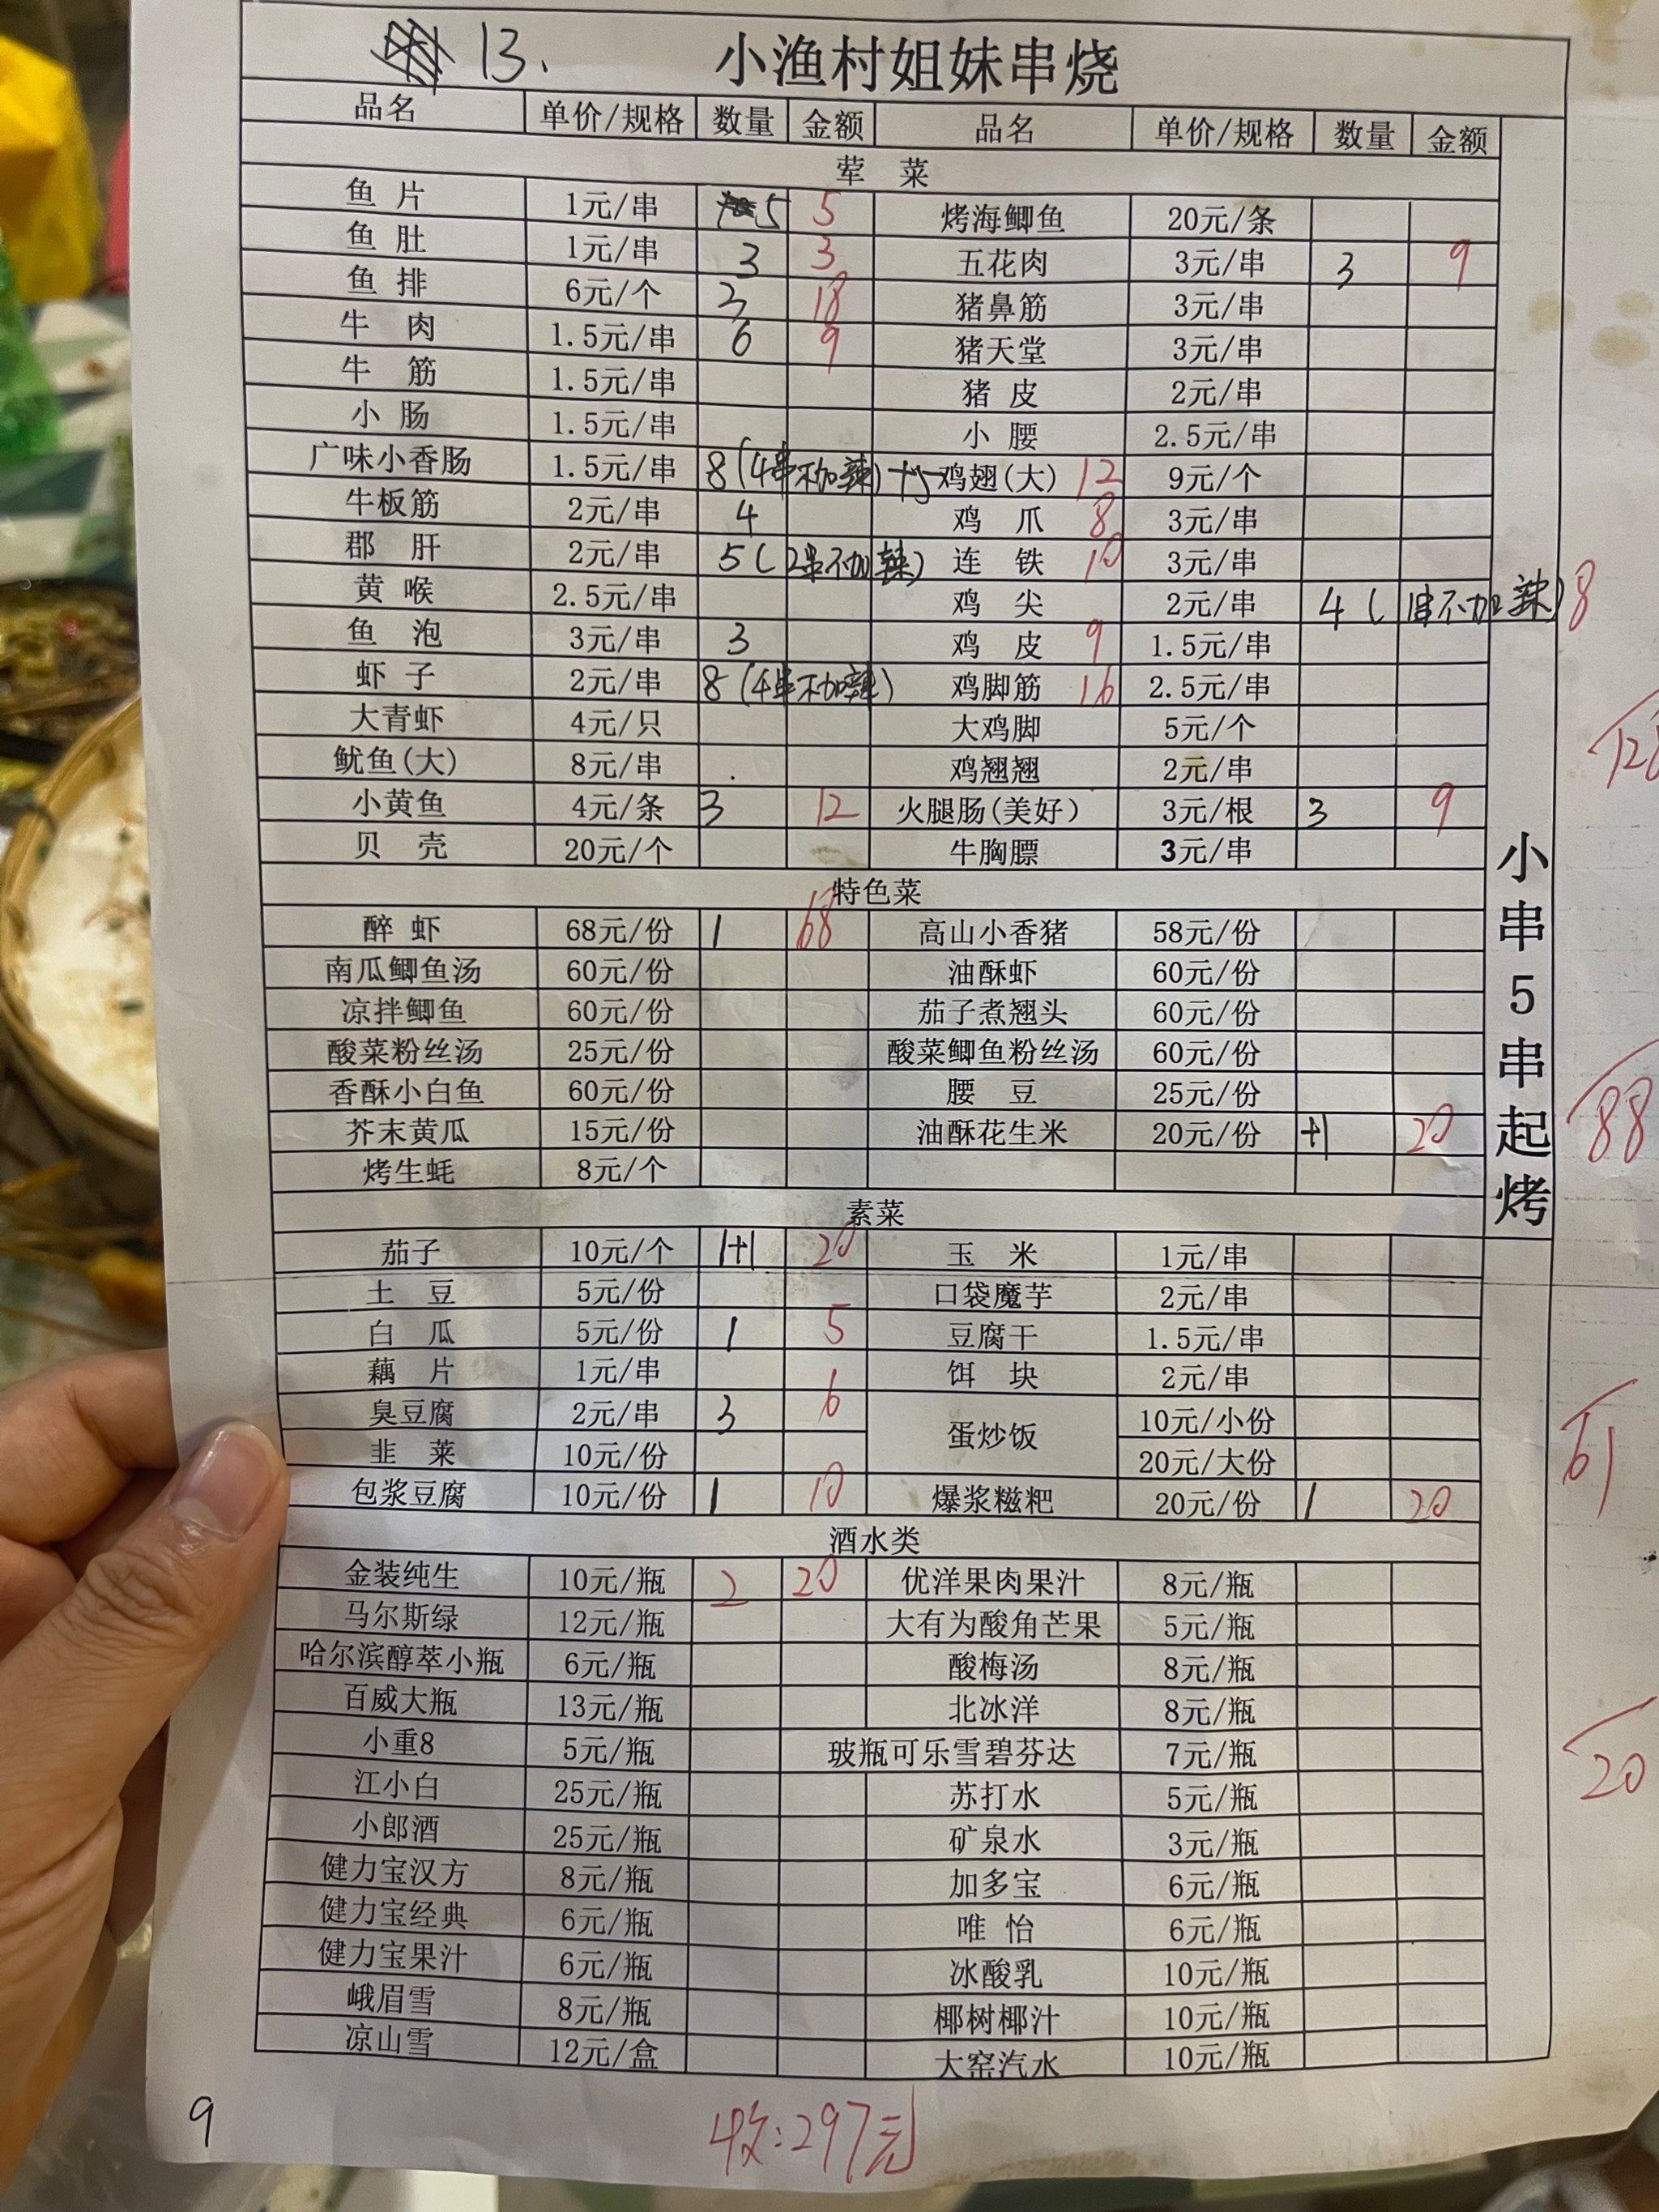 13. 小渔村姐妹串烧
品名 单价/规格 数量 金额 品名 单价/规格 数量 金额
荤 菜
鱼 片 1元/串 5 5 烤海鲫鱼 20元/条
鱼 肚 1元/串 3 3 五花肉 3元/串 3 9
鱼 排 6元/个 3 18 猪鼻筋 3元/串
牛 肉 1.5元/串 6 9 猪天堂 3元/串
牛 筋 1.5元/串 猪 皮 2元/串
小 肠 1.5元/串 小 腰 2.5元/串
广味小香肠 1.5元/串 8(4串不加辣)+5 鸡翅(大) 12 9元/个
牛板筋 2元/串 4 鸡 爪 8 3元/串
郡 肝 2元/串 5(2串不加辣) 连 铁 10 3元/串
黄 喉 2.5元/串 鸡 尖 2元/串 4(1串不加辣) 8
鱼 泡 3元/串 3 鸡 皮 9 1.5元/串
虾 子 2元/串 8(4串不加辣) 鸡脚筋 16 2.5元/串
大青虾 4元/只 大鸡脚 5元/个
鱿鱼(大) 8元/串 鸡翘翘 2元/串
小黄鱼 4元/条 3 12 火腿肠(美好) 3元/根 3 9
贝 壳 20元/个 牛胸膘 3元/串
小串5串起烤
特色菜
醉 虾 68元/份 1 68 高山小香猪 58元/份
南瓜鲫鱼汤 60元/份 油酥虾 60元/份
凉拌鲫鱼 60元/份 茄子煮翘头 60元/份
酸菜粉丝汤 25元/份 酸菜鲫鱼粉丝汤 60元/份
香酥小白鱼 60元/份 腰 豆 25元/份
芥末黄瓜 15元/份 油酥花生米 20元/份 +1 20
88
烤生蚝 8元/个
素菜
茄子 10元/个 1+1 20 玉 米 1元/串
土 豆 5元/份 口袋魔芋 2元/串
白 瓜 5元/份 1 5 豆腐干 1.5元/串
藕 片 1元/串 饵 块 2元/串
臭豆腐 2元/串 3 6 蛋炒饭 10元/小份
韭 菜 10元/份 20元/大份
61
包浆豆腐 10元/份 1 10 爆浆糍粑 20元/份 1 20
酒水类
金装纯生 10元/瓶 2 20 优洋果肉果汁 8元/瓶
马尔斯绿 12元/瓶 大有为酸角芒果 5元/瓶
哈尔滨醇萃小瓶 6元/瓶 酸梅汤 8元/瓶
百威大瓶 13元/瓶 北冰洋 8元/瓶
小重8 5元/瓶 玻瓶可乐雪碧芬达 7元/瓶
20
江小白 25元/瓶 苏打水 5元/瓶
小郎酒 25元/瓶 矿泉水 3元/瓶
健力宝汉方 8元/瓶 加多宝 6元/瓶
健力宝经典 6元/瓶 唯 怡 6元/瓶
健力宝果汁 6元/瓶 冰酸乳 10元/瓶
峨眉雪 8元/瓶 椰树椰汁 10元/瓶
凉山雪 12元/盒 大窑汽水 10元/瓶
9 收:297元